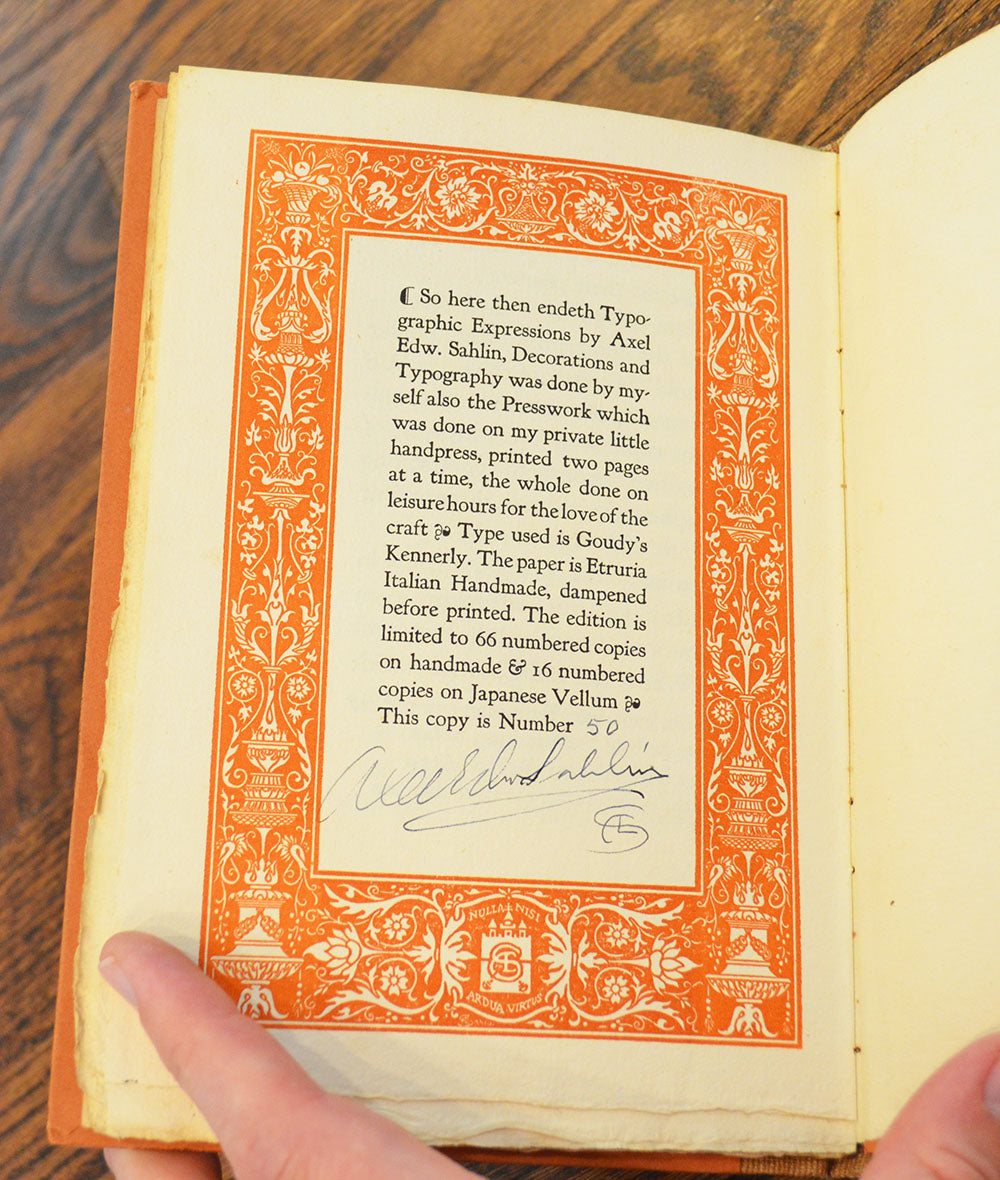 So here then endeth Typo-
graphic Expressions by Axel
Edw. Sahlin, Decorations and
Typography was done by my-
self also the Presswork which
was done on my private little
handpress, printed two pages
at a time, the whole done on
leisure hours for the love of the
craft Type used is Goudy's
Kennerly. The paper is Etruria
Italian Handmade, dampened
before printed. The edition is
limited to 66 numbered copies
on handmade & 16 numbered
copies on Japanese Vellum
This copy is Number 50
Axel Edw. Sahlin
NULLA NISI
ARDUA VIRTUS